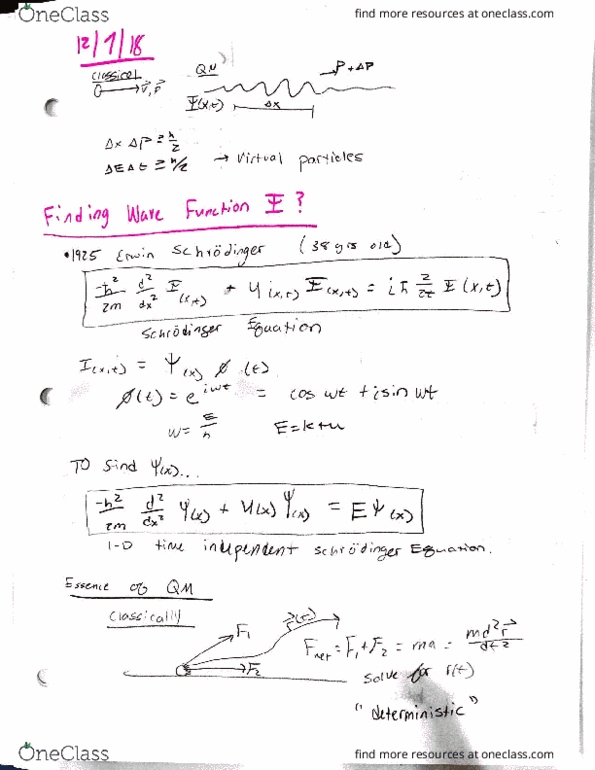 OneClass
find more resources at oneclass.com
12/7/18
Classical
QM
P + ΔP
v, p
Ψ(x,t)
Δx
Δx ΔP ≥ ħ/2
ΔEΔt ≥ ħ/2 → Virtual particles
Finding Wave Function Ψ ?
•1925 Erwin Schrödinger (38 yrs old)
-ħ²/2m d²/dx² Ψ(x,t) + U(x,t) Ψ(x,t) = iħ ∂/∂t Ψ(x,t)
Schrödinger Equation
Ψ(x,t) = Ψ(x) ϕ(t)
ϕ(t) = e^iωt = cos ωt + i sin ωt
ω = E/ħ E = k + u
TO find Ψ(x)...
-ħ²/2m d²/dx² Ψ(x) + U(x) Ψ(x) = E Ψ(x)
1-D time independent Schrödinger Equation.
Essence of QM
Classically
F₁
r(t)
F₂
Fnet = F₁ + F₂ = ma = md²r/dt²
Solve for r(t)
"deterministic"
OneClass
find more resources at oneclass.com